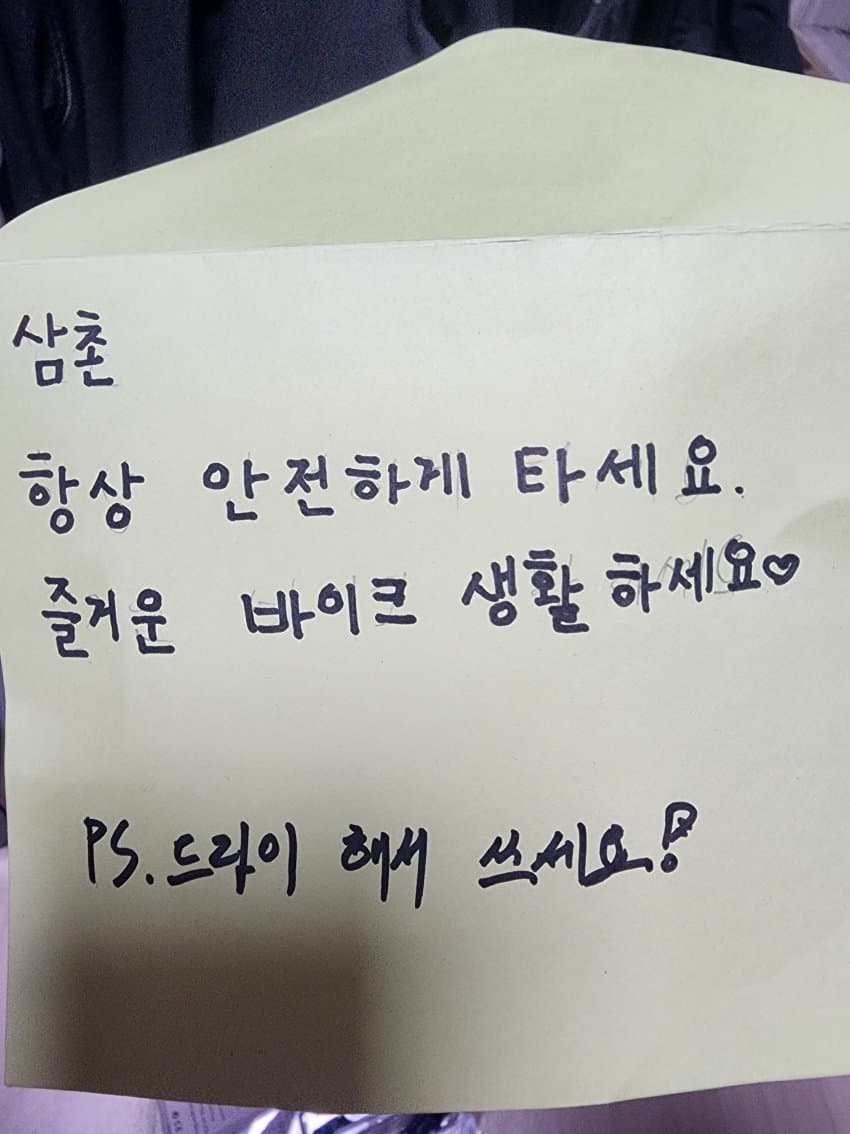 삼촌
항상 안전하게 타세요.
즐거운 바이크 생활 하세요♡
PS. 드라이 해서 쓰세요!